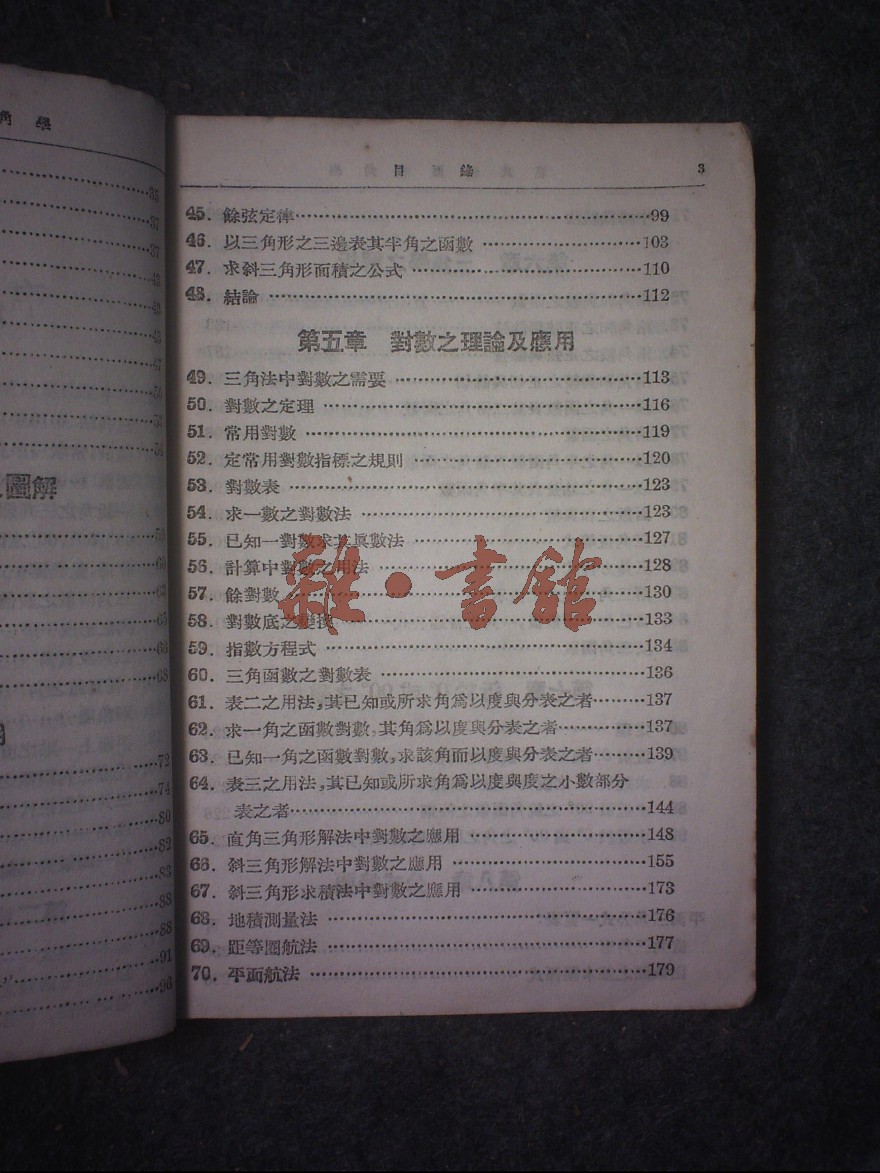 角 學
35
37
37
43
圖解
60
63
65
68
72
74
80
82
83
88
88
91
96
目 錄 3
45. 餘弦定律……99
46. 以三角形之三邊表其半角之函數……103
47. 求斜三角形面積之公式……110
48. 結論……112
第五章 對數之理論及應用
49. 三角法中對數之需要……113
50. 對數之定理……116
51. 常用對數……119
52. 定常用對數指標之規則……120
53. 對數表……123
54. 求一數之對數法……123
55. 已知一對數求其眞數法……127
56. 計算中對數之用法……128
57. 餘對數……130
58. 對數底之變換……133
59. 指數方程式……134
60. 三角函數之對數表……136
61. 表二之用法,其已知或所求角爲以度與分表之者……137
62. 求一角之函數對數,其角爲以度與分表之者……137
63. 已知一角之函數對數,求該角而以度與分表之者……139
64. 表三之用法,其已知或所求角爲以度與度之小數部分
表之者……144
65. 直角三角形解法中對數之應用……148
66. 斜三角形解法中對數之應用……155
67. 斜三角形求積法中對數之應用……173
68. 地積測量法……176
69. 距等圈航法……177
70. 平面航法……179
雜·書館